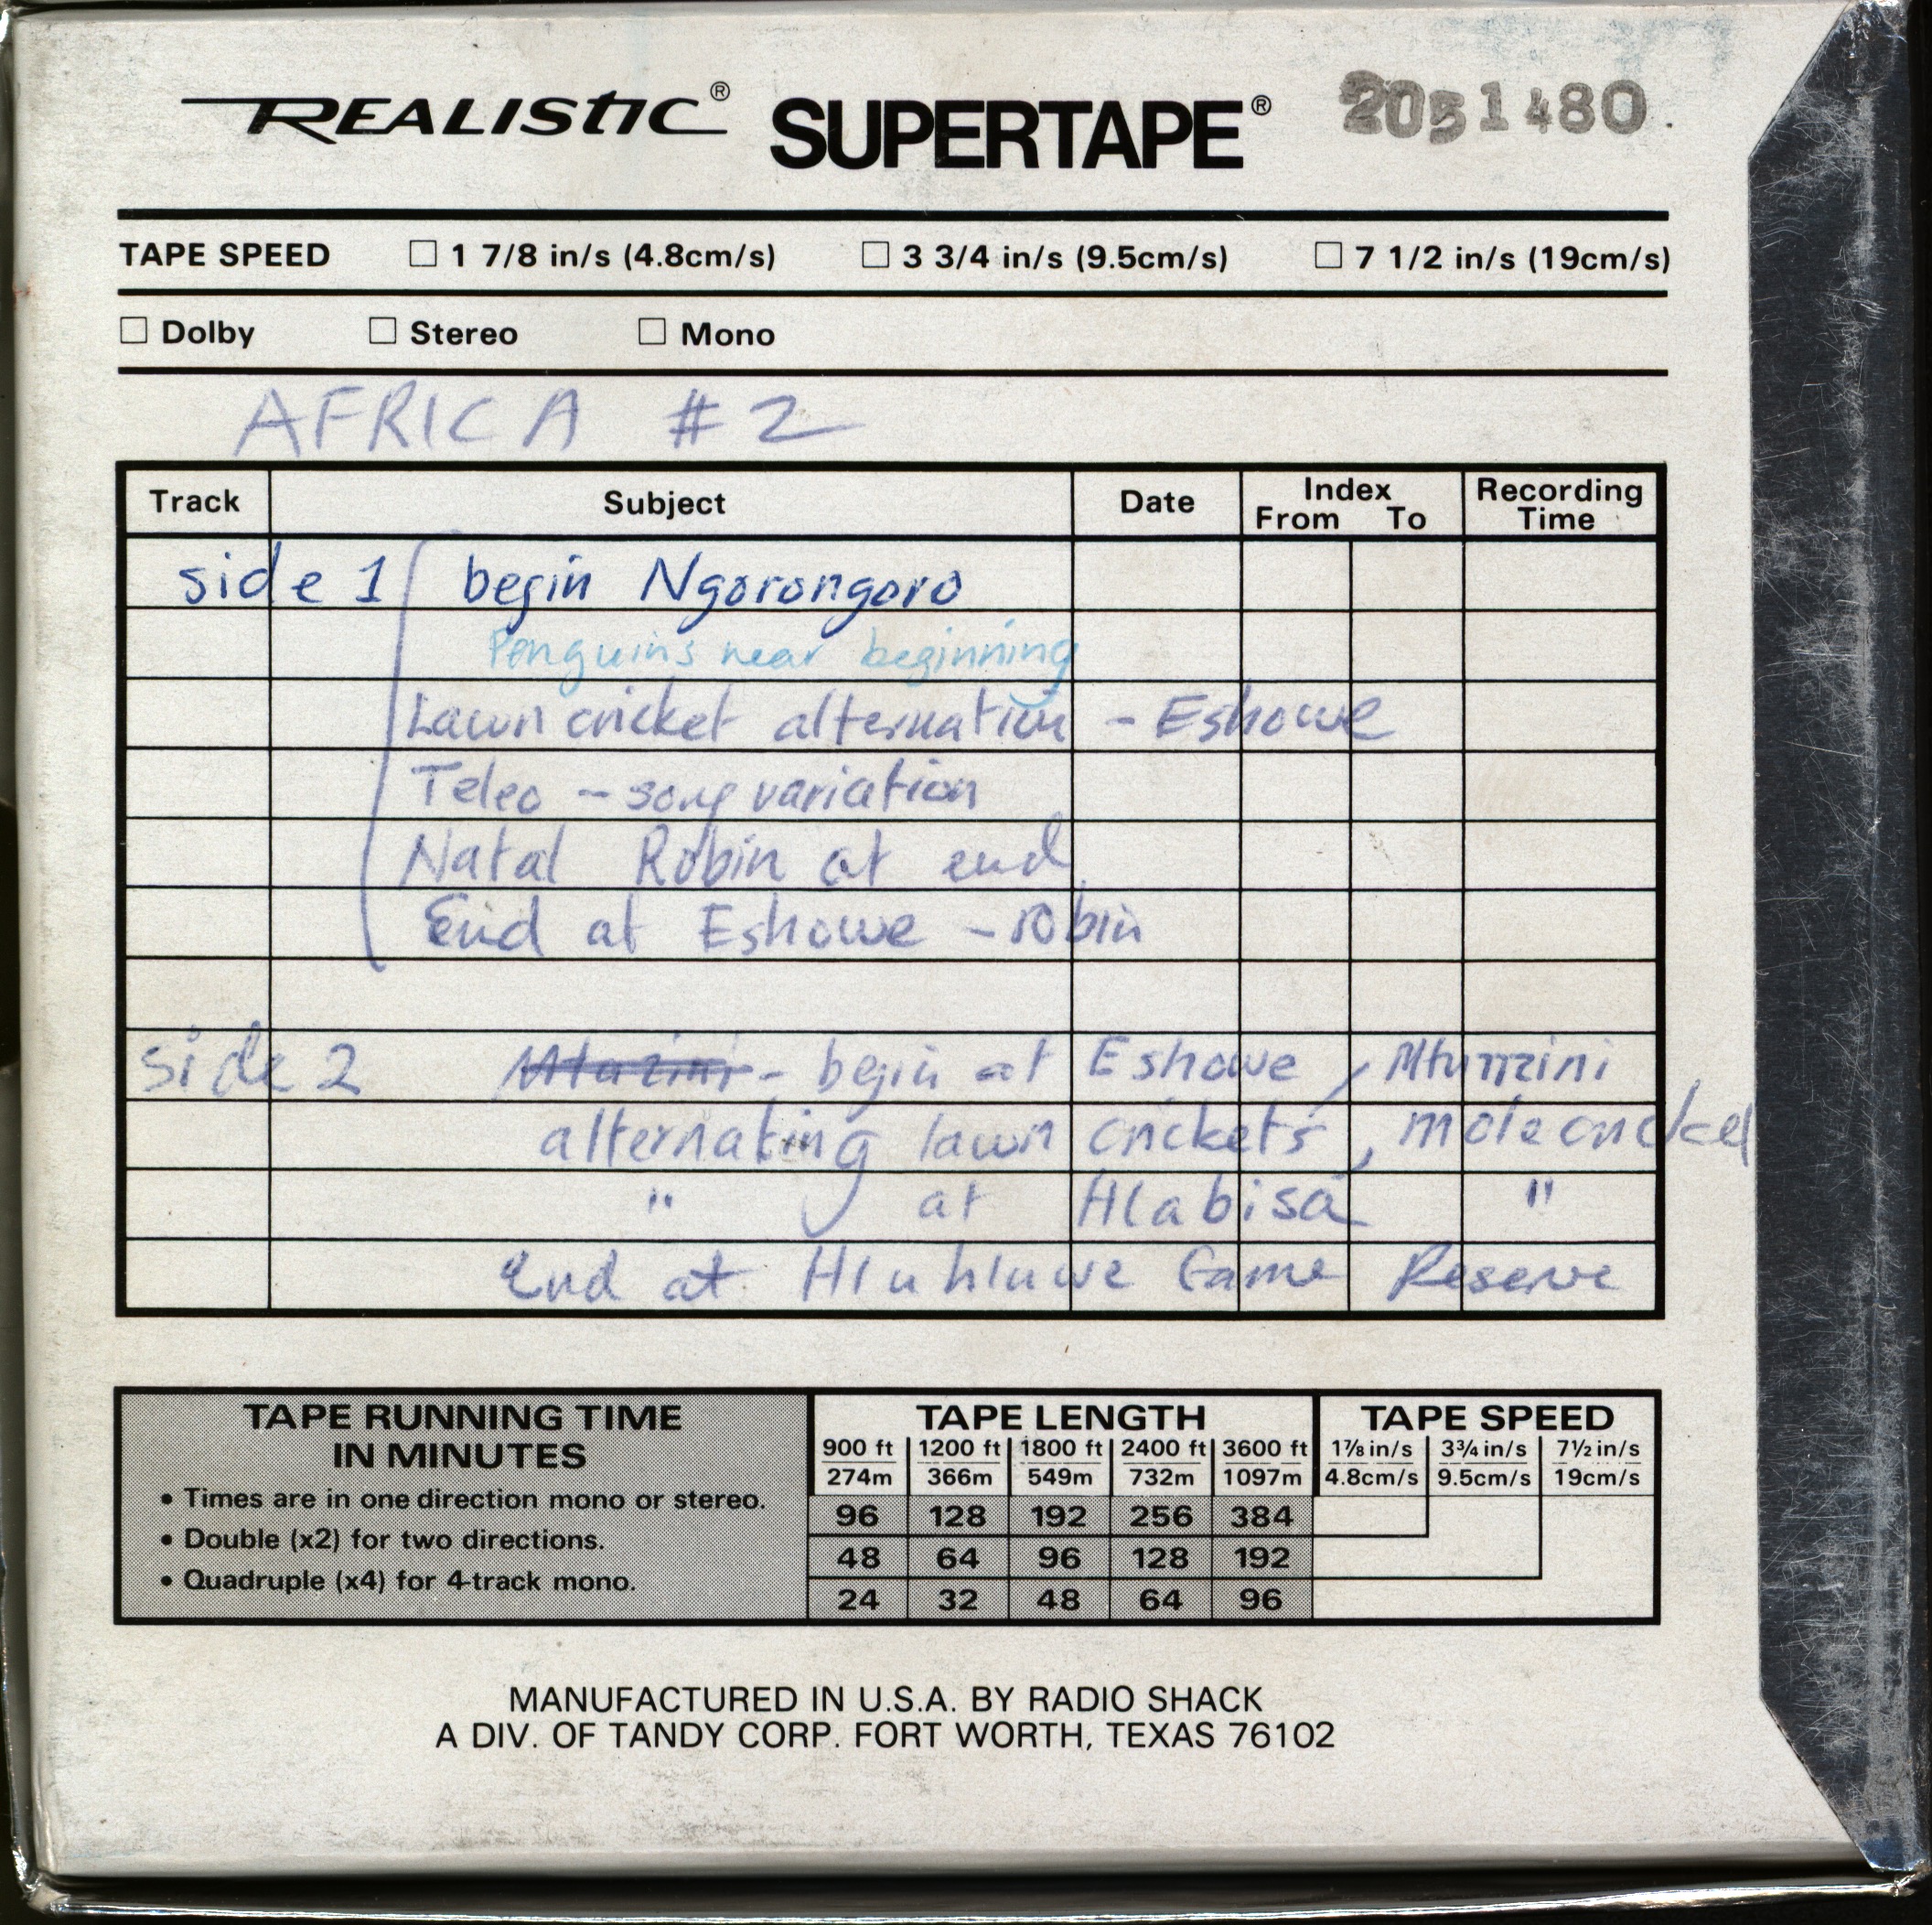 REALISTIC® SUPERTAPE® 2051480
TAPE SPEED □ 1 7/8 in/s (4.8cm/s) □ 3 3/4 in/s (9.5cm/s) □ 7 1/2 in/s (19cm/s)
□ Dolby □ Stereo □ Mono
AFRICA #2
Track Subject Date Index From To Recording Time
side 1 begin Ngorongoro
Penguins near beginning
Lawn cricket alternation - Eshowe
Teleo - song variation
Natal Robin at end
End at Eshowe - robin
side 2 - begin at Eshowe / Mtunzini
alternating lawn crickets, mole cricket
" at Hlabisa "
End at Hluhluwe Game Reserve
TAPE RUNNING TIME
IN MINUTES
• Times are in one direction mono or stereo.
• Double (x2) for two directions.
• Quadruple (x4) for 4-track mono.
TAPE LENGTH
900 ft 1200 ft 1800 ft 2400 ft 3600 ft
274m 366m 549m 732m 1097m
96 128 192 256 384
48 64 96 128 192
24 32 48 64 96
TAPE SPEED
1⅞ in/s 3¾ in/s 7½ in/s
4.8cm/s 9.5cm/s 19cm/s
MANUFACTURED IN U.S.A. BY RADIO SHACK
A DIV. OF TANDY CORP. FORT WORTH, TEXAS 76102